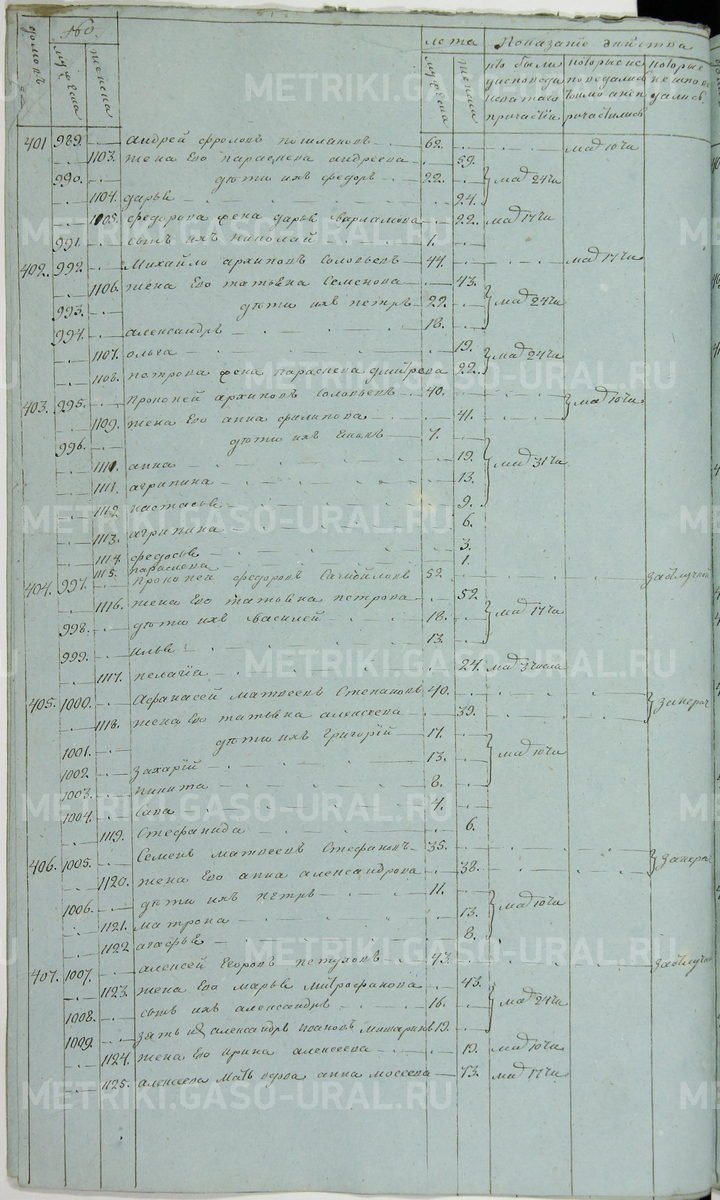 домовъ мужеска женска лѣта Показанiе дѣйства
мужеска женска кто были которые ис которые
401 989. Андрей Фроловъ 62. маiя 10 ч
1103. жена его Параскева Андреева 59.
990. дѣти ихъ Федоръ 22. маiя 24 ч
1104. Дарья 24.
1105. Федорова жена Дарья Варламова 22. маiя 17 ч
991. сынъ ихъ Николай 1.
402. 992. Михайло Архиповъ Соловьевъ 44. маiя 17 ч
1106. жена его Татьяна Семенова 43.
993. дѣти ихъ Петръ 22. маiя 24 ч
994. Александръ 18.
1107. Ольга 19. маiя 24 ч
1108. Петрова жена Параскева Дмитрева 22.
403. 995. Прокопей Архиповъ Соловьевъ 40. маiя 10 ч
1109. жена его Анна Филипова 41.
996. дѣти ихъ 7.
1110. Анна 19. маiя 31 ч
1111. Аграпина 13.
1112. Настасья 9.
1113. Аграпина 6.
1114. Федосья 3.
1115. Параскева 1.
404. 997. Прокопей Федоровъ Самойловъ 52. за отлучкой
1116. жена его Татьяна Петрова 52.
998. дѣти ихъ Василей 18. маiя 17 ч
999. Илья 13.
1117. Пелагiя 24. маiя 3 числа
405. 1000. Афанасей Матвеевъ Степановъ 40. за нерач
1118. жена его Татьяна Алексеева 39.
1001. дѣти ихъ Григорiй 17. маiя 10 ч
1002. Захарiй 13.
1003. Никита 8.
1004. Сава 4.
1119. Стефанида 6.
406. 1005. Семенъ Матвеевъ Стефановъ 35. за нерач
1120. жена его Анна Александрова 38.
1006. дѣти ихъ Петръ 11. маiя 10 ч
1121. Матрона 13.
1122 Агафья 8.
407. 1007. Алексей Егоровъ Петуховъ 43. за отлучкой
1123. жена его Марья Митрофанова 43.
1008. сынъ ихъ Александръ 16. маiя 24 ч
1009. зять их Александръ Иоановъ Мишаринъ 19.
1124. жена его Ирина Алексеева 19. маiя 10 ч
1125. Алексеева мать вдова Анна Мосеева 73. маiя 17 ч
METRIKI.GASO-URAL.RU